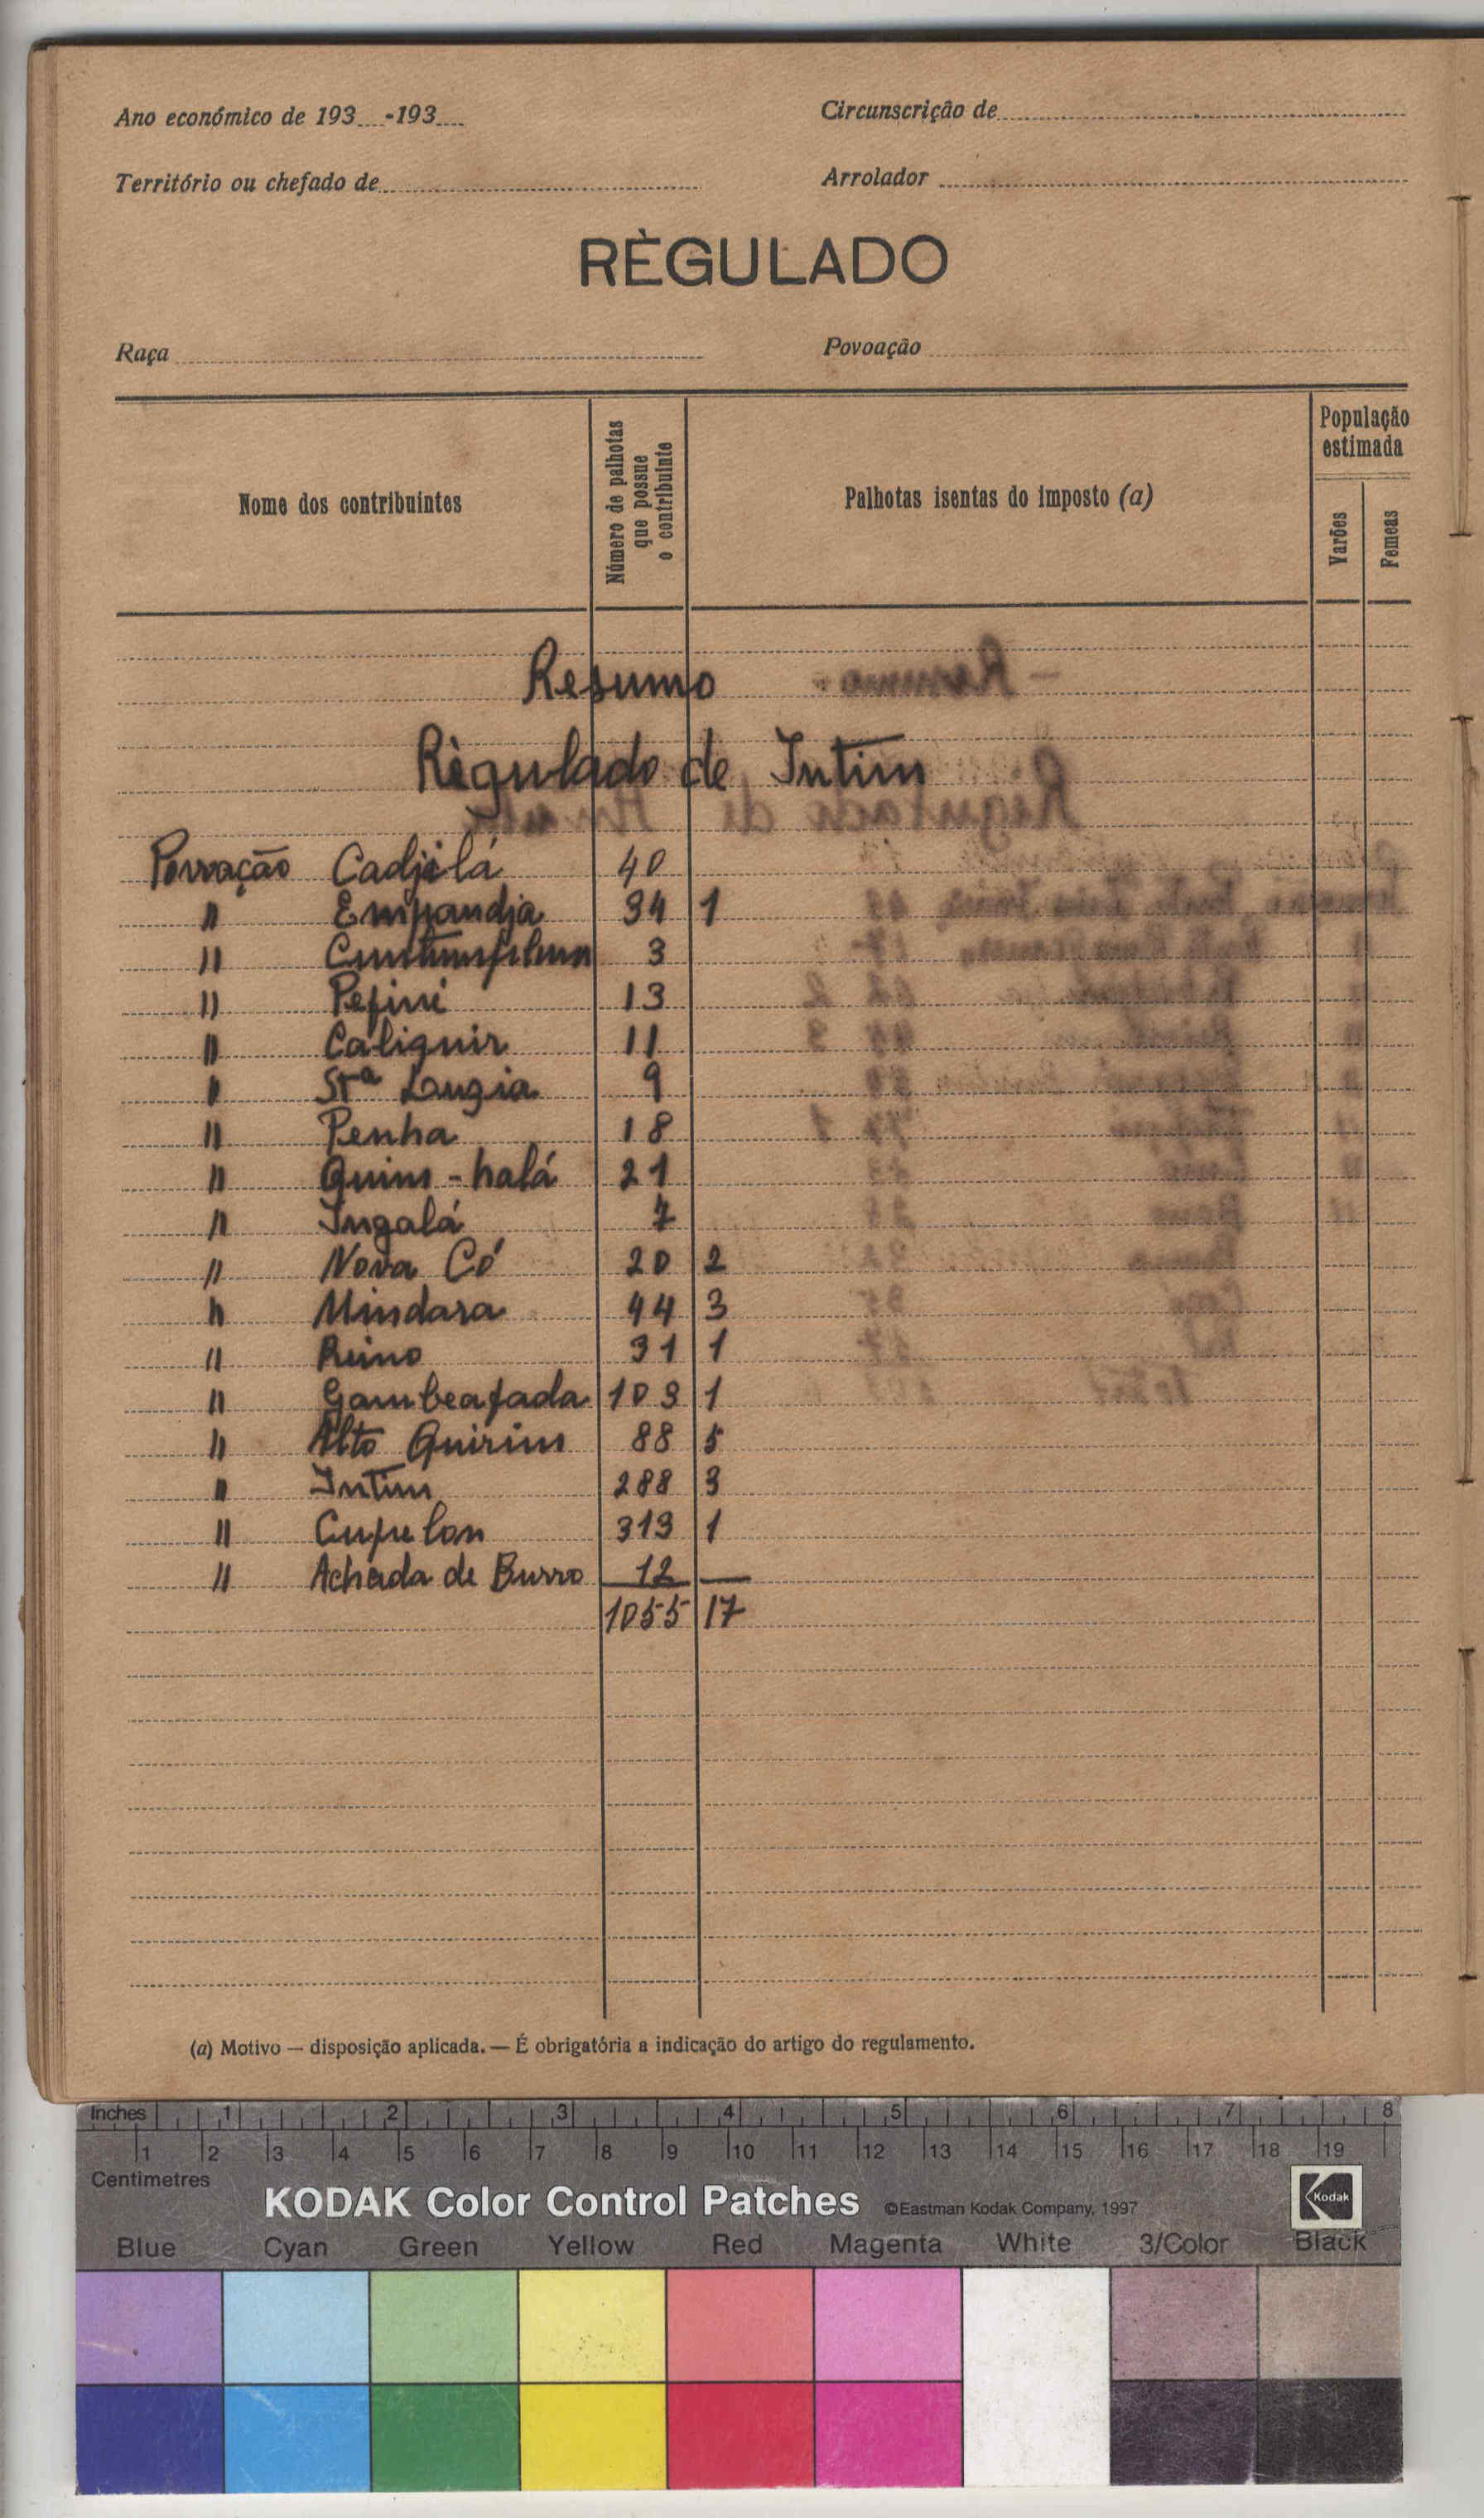 Ano económico de 193 -193 Circunscrição de
Território ou chefado de Arrolador
RÈGULADO
Raça Povoação
Nome dos contribuintes
Número de palhotas que possue o contribuinte
Palhotas isentas do imposto (a)
População estimada
Varões
Femeas
Resumo
Règulado de Intim
Povoação Cadjilá 40
" Empandja 34 1
" 3
" Pefiné 13
" Caliquir 11
" Stª Luzia 9
" Penha 18
" Quim-halá 21
" Ingalá 7
" Nova Có 20 2
" Mindara 44 3
" Reino 31 1
" Gambeafada 103 1
" Alto Quirim 88 5
" Intim 288 3
" Cupelon 313 1
" Achada de Burro 12 —
1055 17
(a) Motivo — disposição aplicada. — É obrigatória a indicação do artigo do regulamento.
Inches 1 2 3 4 5 6 7 8
1 2 3 4 5 6 7 8 9 10 11 12 13 14 15 16 17 18 19
Centimetres
KODAK Color Control Patches ©Eastman Kodak Company, 1997 Kodak
Blue Cyan Green Yellow Red Magenta White 3/Color Black